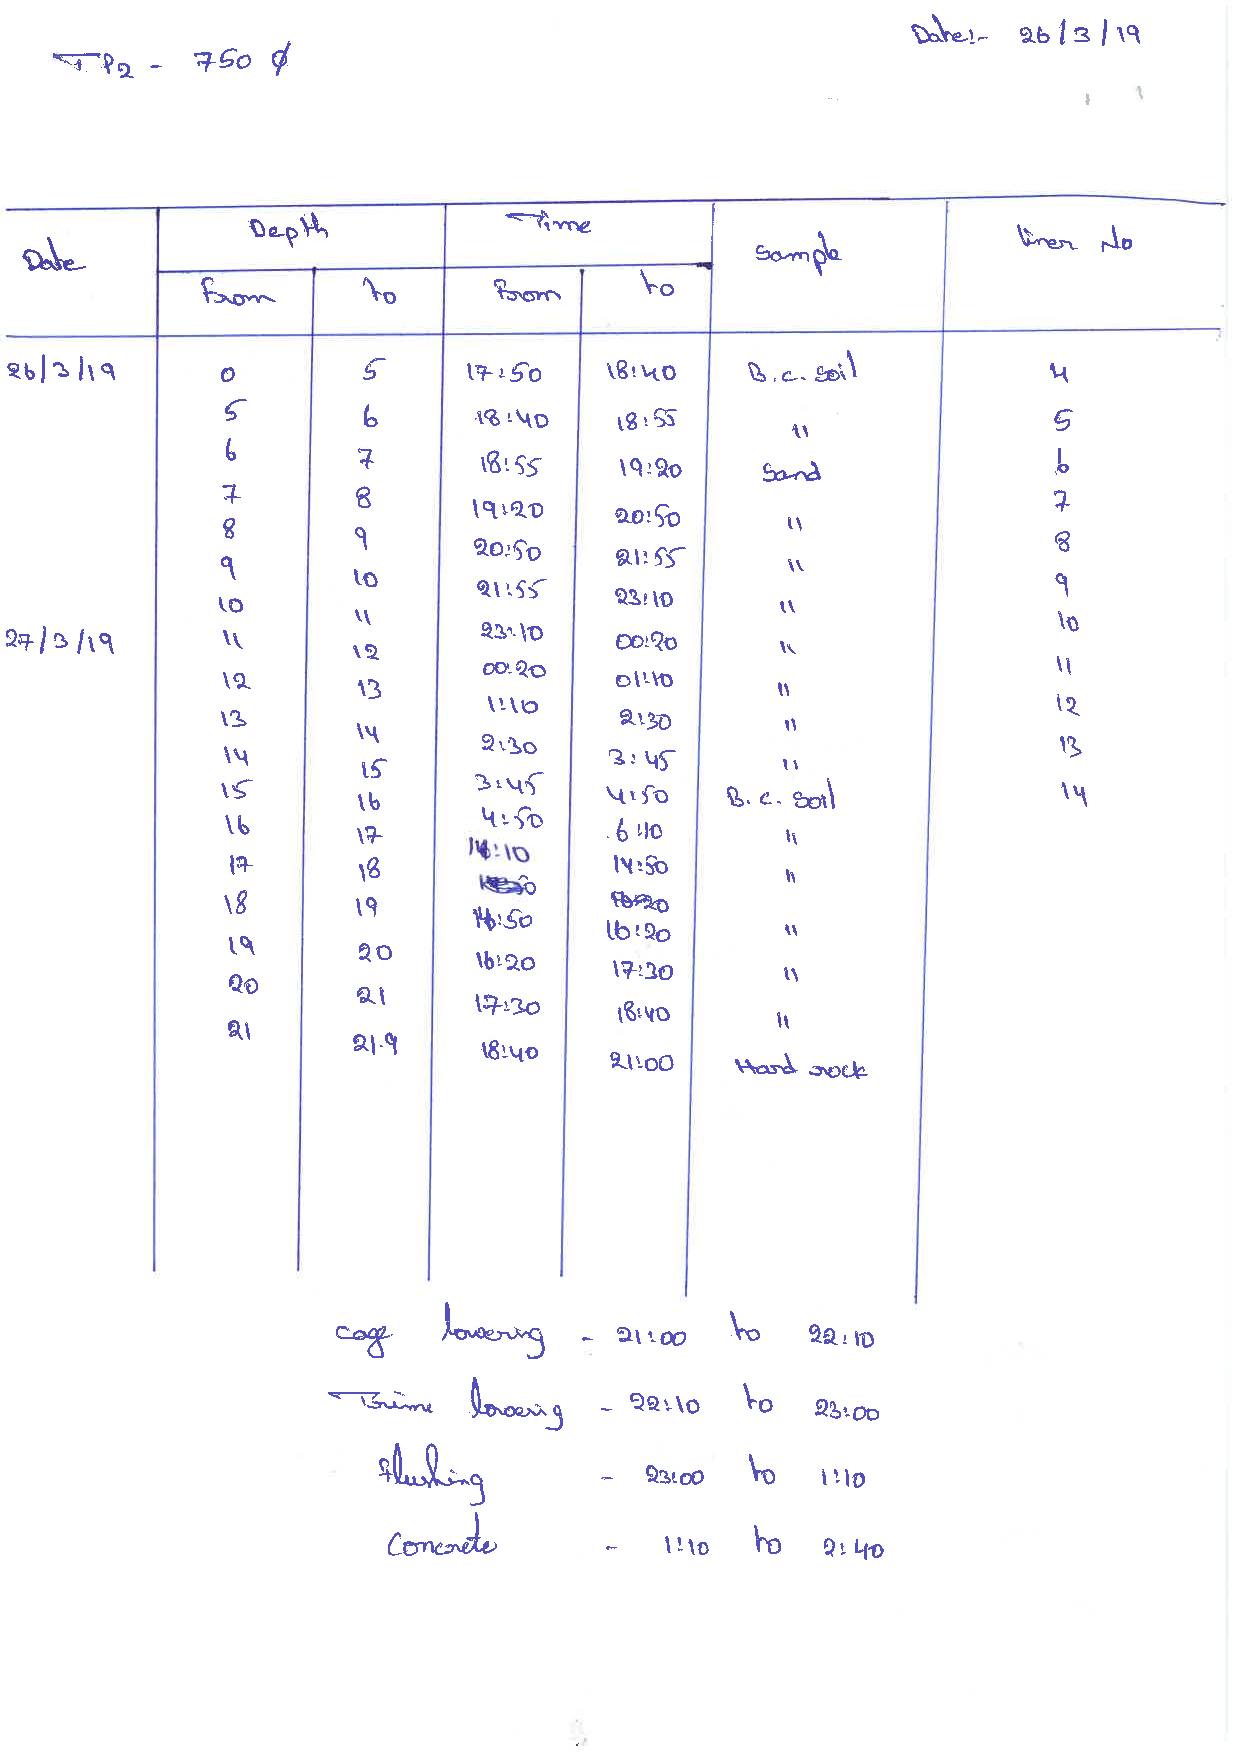 Date:- 26/3/19
TP2 - 750 ϕ
Date Depth Time Sample liner No
From to From to
26/3/19 0 5 17:50 18:40 B.C. Soil 4
5 6 18:40 18:55 " 5
6 7 18:55 19:20 Sand 6
7 8 19:20 20:50 " 7
8 9 20:50 21:55 " 8
9 10 21:55 23:10 " 9
10 11 23:10 00:20 " 10
27/3/19 11 12 00:20 01:10 " 11
12 13 1:10 2:30 " 12
13 14 2:30 3:45 " 13
14 15 3:45 4:50 B.C. Soil 14
15 16 4:50 6:10 "
16 17 14:10 14:50 "
17 18
18 19 14:50 16:20 "
19 20 16:20 17:30 "
20 21 17:30 18:40 "
21 21.9 18:40 21:00 Hard rock
cage lowering - 21:00 to 22:10
Trime lowerig - 22:10 to 23:00
Flushing - 23:00 to 1:10
Concrete - 1:10 to 2:40